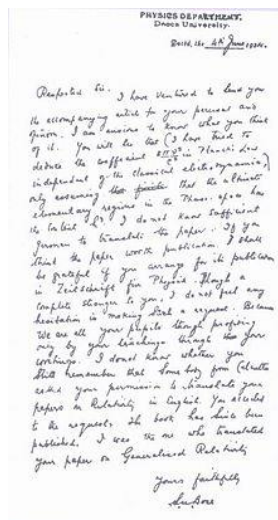 PHYSICS DEPARTMENT,
Dacca University.
Dated, the 4th June, 1924.
Respected Sir, I have ventured to send you
the accompanying article for your perusal and
opinion. I am anxious to know what you think
of it. You will see that I have tried to
deduce the coefficient 8πν²/c³ in Planck's Law
independent of the classical electrodynamics,
only assuming that the ultimate
elementary regions in the Phase-space has
the content h³. I do not know sufficient
German to translate the paper. If you
think the paper worth publication I shall
be grateful if you arrange for its publication
in Zeitschrift für Physik. Though a
complete stranger to you, I do not feel any
hesitation in making such a request. Because
we are all your pupils though profiting
only by your teachings through your
writings. I do not know whether you
still remember that somebody from Calcutta
asked your permission to translate your
papers on Relativity in English. You acceded
to the request. The book has since been
published. I was the one who translated
your paper on Generalised Relativity
Yours faithfully
S.N. Bose